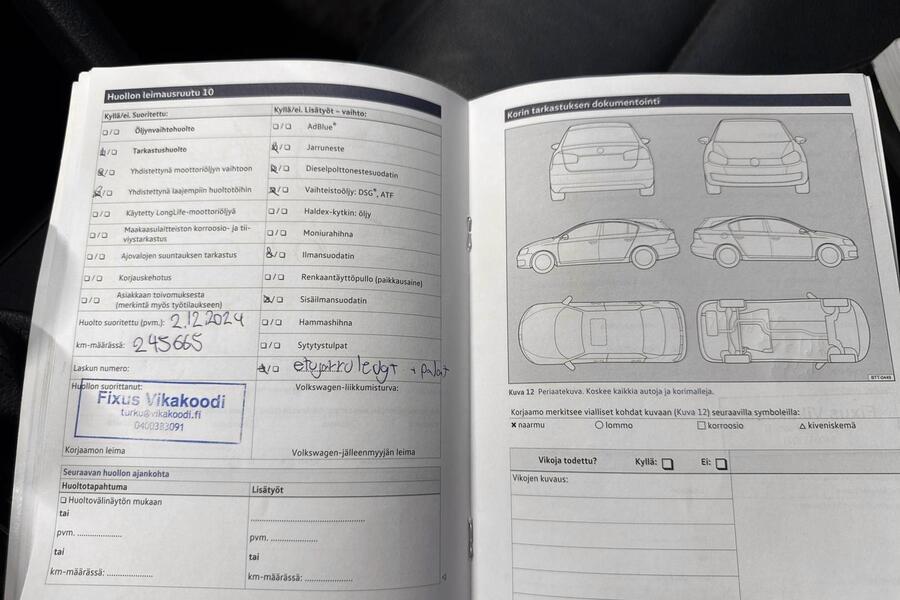 Huollon leimausruutu 10
Kyllä/ei. Suoritettu:
Öljynvaihtohuolto
Tarkastushuolto
Yhdistettynä moottoriöljyn vaihtoon
Yhdistettynä laajempiin huoltotöihin
Käytetty LongLife-moottoriöljyä
Maakaasulaitteiston korroosio- ja tii-
viystarkastus
Ajovalojen suuntauksen tarkastus
Korjauskehotus
Asiakkaan toivomuksesta
(merkintä myös työtilaukseen)
Huolto suoritettu (pvm.): 2.12.2024
km-määrässä: 245665
Laskun numero:
Huollon suorittanut:
Fixus Vikakoodi
turku@vikakoodi.fi
0400383091
Korjaamon leima
Kyllä/ei. Lisätyöt – vaihto:
AdBlue®
Jarruneste
Dieselpolttonestesuodatin
Vaihteistoöljy: DSG®, ATF
Haldex-kytkin: öljy
Moniurahihna
Ilmansuodatin
Renkaantäyttöpullo (paikkausaine)
Sisäilmansuodatin
Hammashihna
Sytytystulpat
etujarru levyt + palat
Volkswagen-liikkumisturva:
Volkswagen-jälleenmyyjän leima
Seuraavan huollon ajankohta
Huoltotapahtuma
Huoltovälinäytön mukaan
tai
pvm. ....................
tai
km-määrässä: ....................
Lisätyöt
........................................
pvm. ....................
tai
km-määrässä: ....................
Korin tarkastuksen dokumentointi
BTT-0448
Kuva 12 Periaatekuva. Koskee kaikkia autoja ja korimalleja.
Korjaamo merkitsee vialliset kohdat kuvaan (Kuva 12) seuraavilla symboleilla:
naarmu lommo korroosio kiveniskemä
Vikoja todettu? Kyllä: Ei:
Vikojen kuvaus: